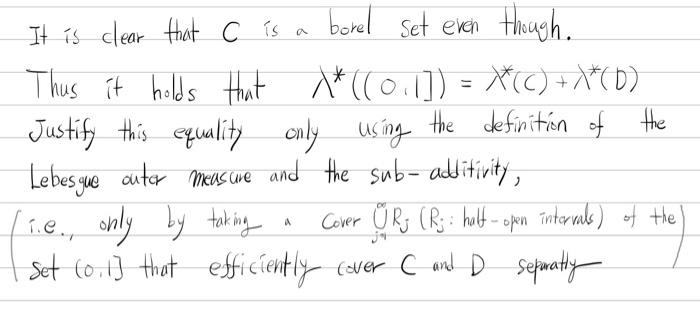 It is clear that C is a borel set even though.
Thus it holds that λ*((0,1]) = λ*(C) + λ*(D)
Justify this equality only using the definition of the
Lebesgue outer measure and the sub-additivity,
(i.e., only by taking a cover ∞⋃j=1 Rj (Rj : half-open intervals) of the
set (0,1] that efficiently cover C and D separatly)